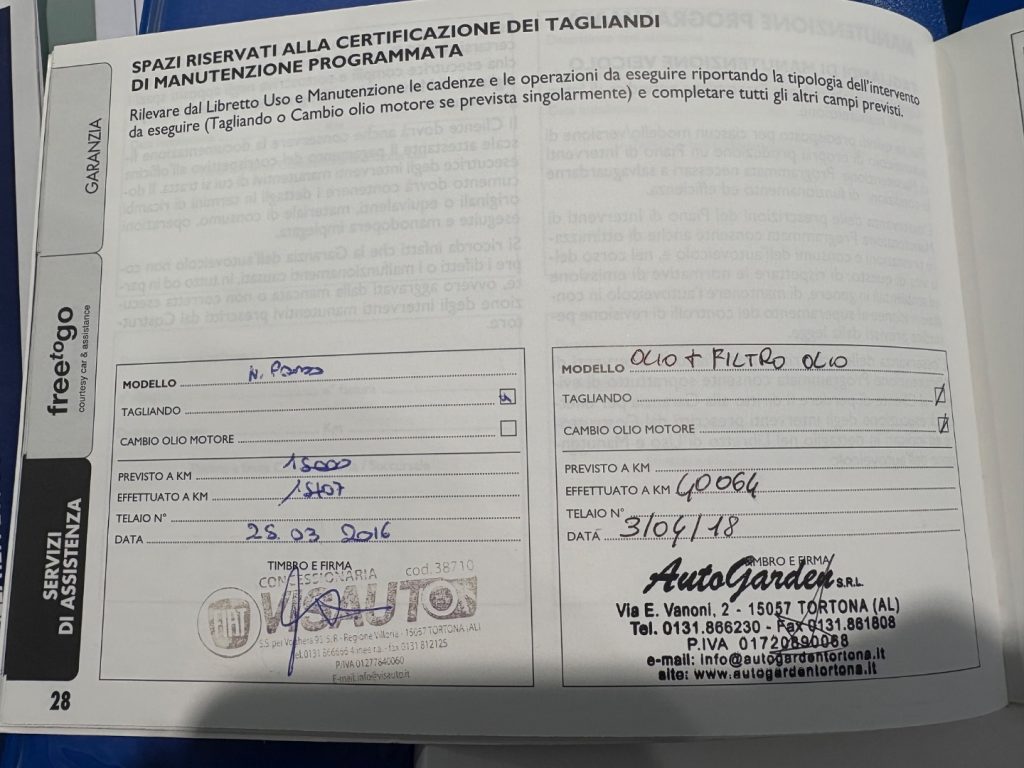 SPAZI RISERVATI ALLA CERTIFICAZIONE DEI TAGLIANDI
DI MANUTENZIONE PROGRAMMATA
Rilevare dal Libretto Uso e Manutenzione le cadenze e le operazioni da eseguire riportando la tipologia dell'intervento
da eseguire (Tagliando o Cambio olio motore se prevista singolarmente) e completare tutti gli altri campi previsti.
GARANZIA
freetogo
courtesy car & assistance
SERVIZI
DI ASSISTENZA
MODELLO N. Panda
TAGLIANDO
CAMBIO OLIO MOTORE
PREVISTO A KM 15000
EFFETTUATO A KM
TELAIO N°
DATA 25.03 2016
TIMBRO E FIRMA
CONCESSIONARIA cod.38710
VISAUTO
FIAT
S.S. per Voghera 93 - Regione Villoria - 15057 TORTONA (AL)
fax 0131 812125
P.IVA 01277640060
E-mail: info@visauto.it
MODELLO OLIO + FILTRO OLIO
TAGLIANDO
CAMBIO OLIO MOTORE
PREVISTO A KM
EFFETTUATO A KM 40064
TELAIO N°
DATA 3/04/18
TIMBRO E FIRMA
AutoGarden S.R.L.
Via E. Vanoni, 2 - 15057 TORTONA (AL)
Tel. 0131.866230 - Fax 0131.861808
P.IVA 01720890068
e-mail: info@autogardentortona.it
sito: www.autogardentortona.it
28